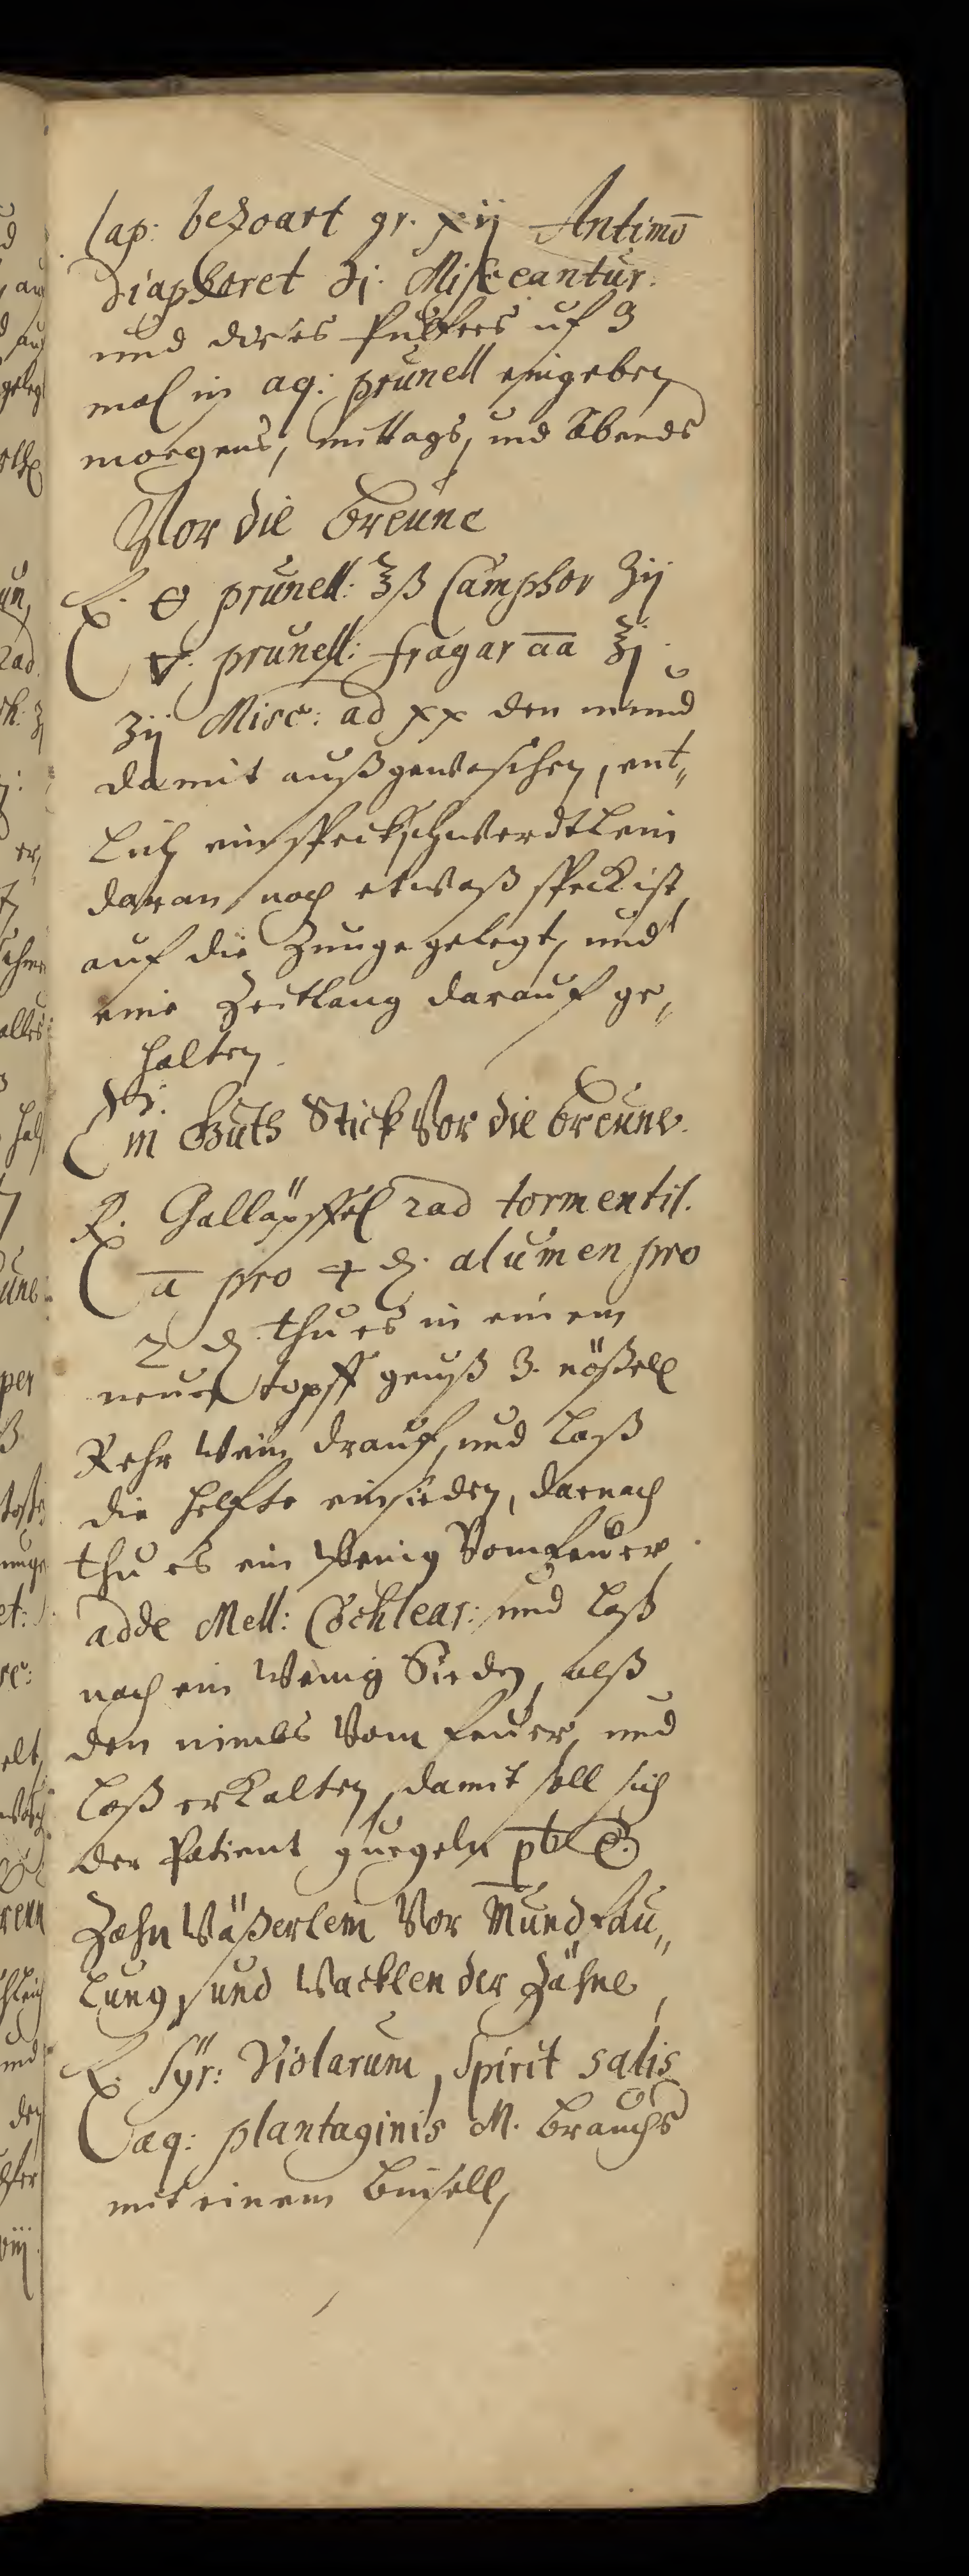 lap: bezoart gr. xij Antimō
Diaphoret ʒj. Misceantur.
und dieses Pulfers uf 3
mal in aq: prunell eingeben
morgens, mittags, und Abends
Vor die breune
℞. prunell: ℥ß Camphor ʒij
prunell: fragar āā ℥j
ʒij Misc: ad xx den mund
damit außgewaschen, ent„
lich ein speckschwerdtlein
daran noch etwaß speck ist,
auf die Zunge gelegt, und
eine Zeitlang darauf ge„
halten.
Ein Guth Stick Vor die breune.
℞. Galläpffel rad tormentil.
ā pro 4 ₰. alumen pro
2 ₰ thu es in einem
neuen topff geuß 3. nößell
Wein drauf, und laß
die helfte einsieden, darnach
thu es ein wenig Vom feuer,
adde Mell: Cochlear: und laß
noch ein wenig Sieden, alß
den nimbs Vom feuer, und
laß erkalten, damit soll sich
der Patient gurgeln
Zahn Wäßerlein Vor Mundfäu„
lung, und Wacklen der Zähne,
℞. Syr: Violarum, Spirit salis
aq: plantaginis M. brauchs
mit einem